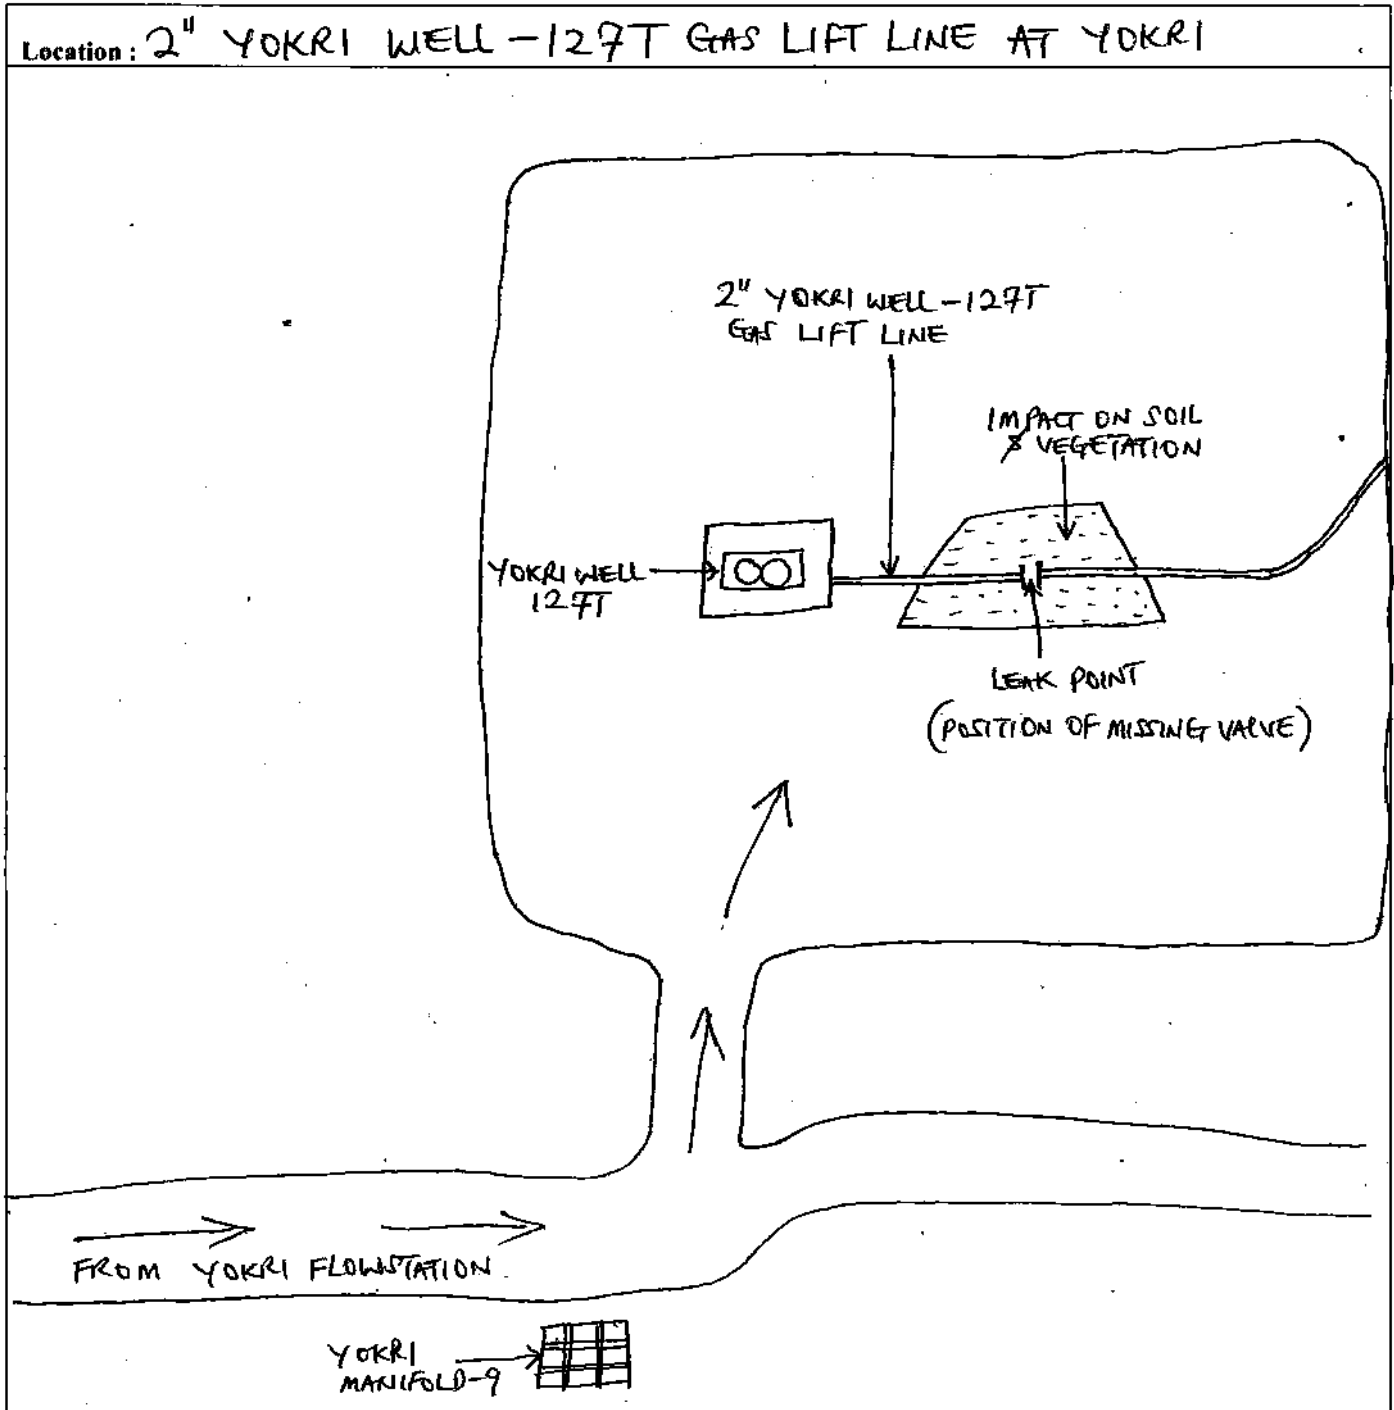 Location : 2" YOKRI WELL -127T GAS LIFT LINE AT YOKRI
2" YOKRI WELL -127T
GAS LIFT LINE
IMPACT ON SOIL
& VEGETATION
YOKRI WELL
127T
LEAK POINT
(POSITION OF MISSING VALVE)
FROM YOKRI FLOWSTATION
YOKRI
MANIFOLD-9